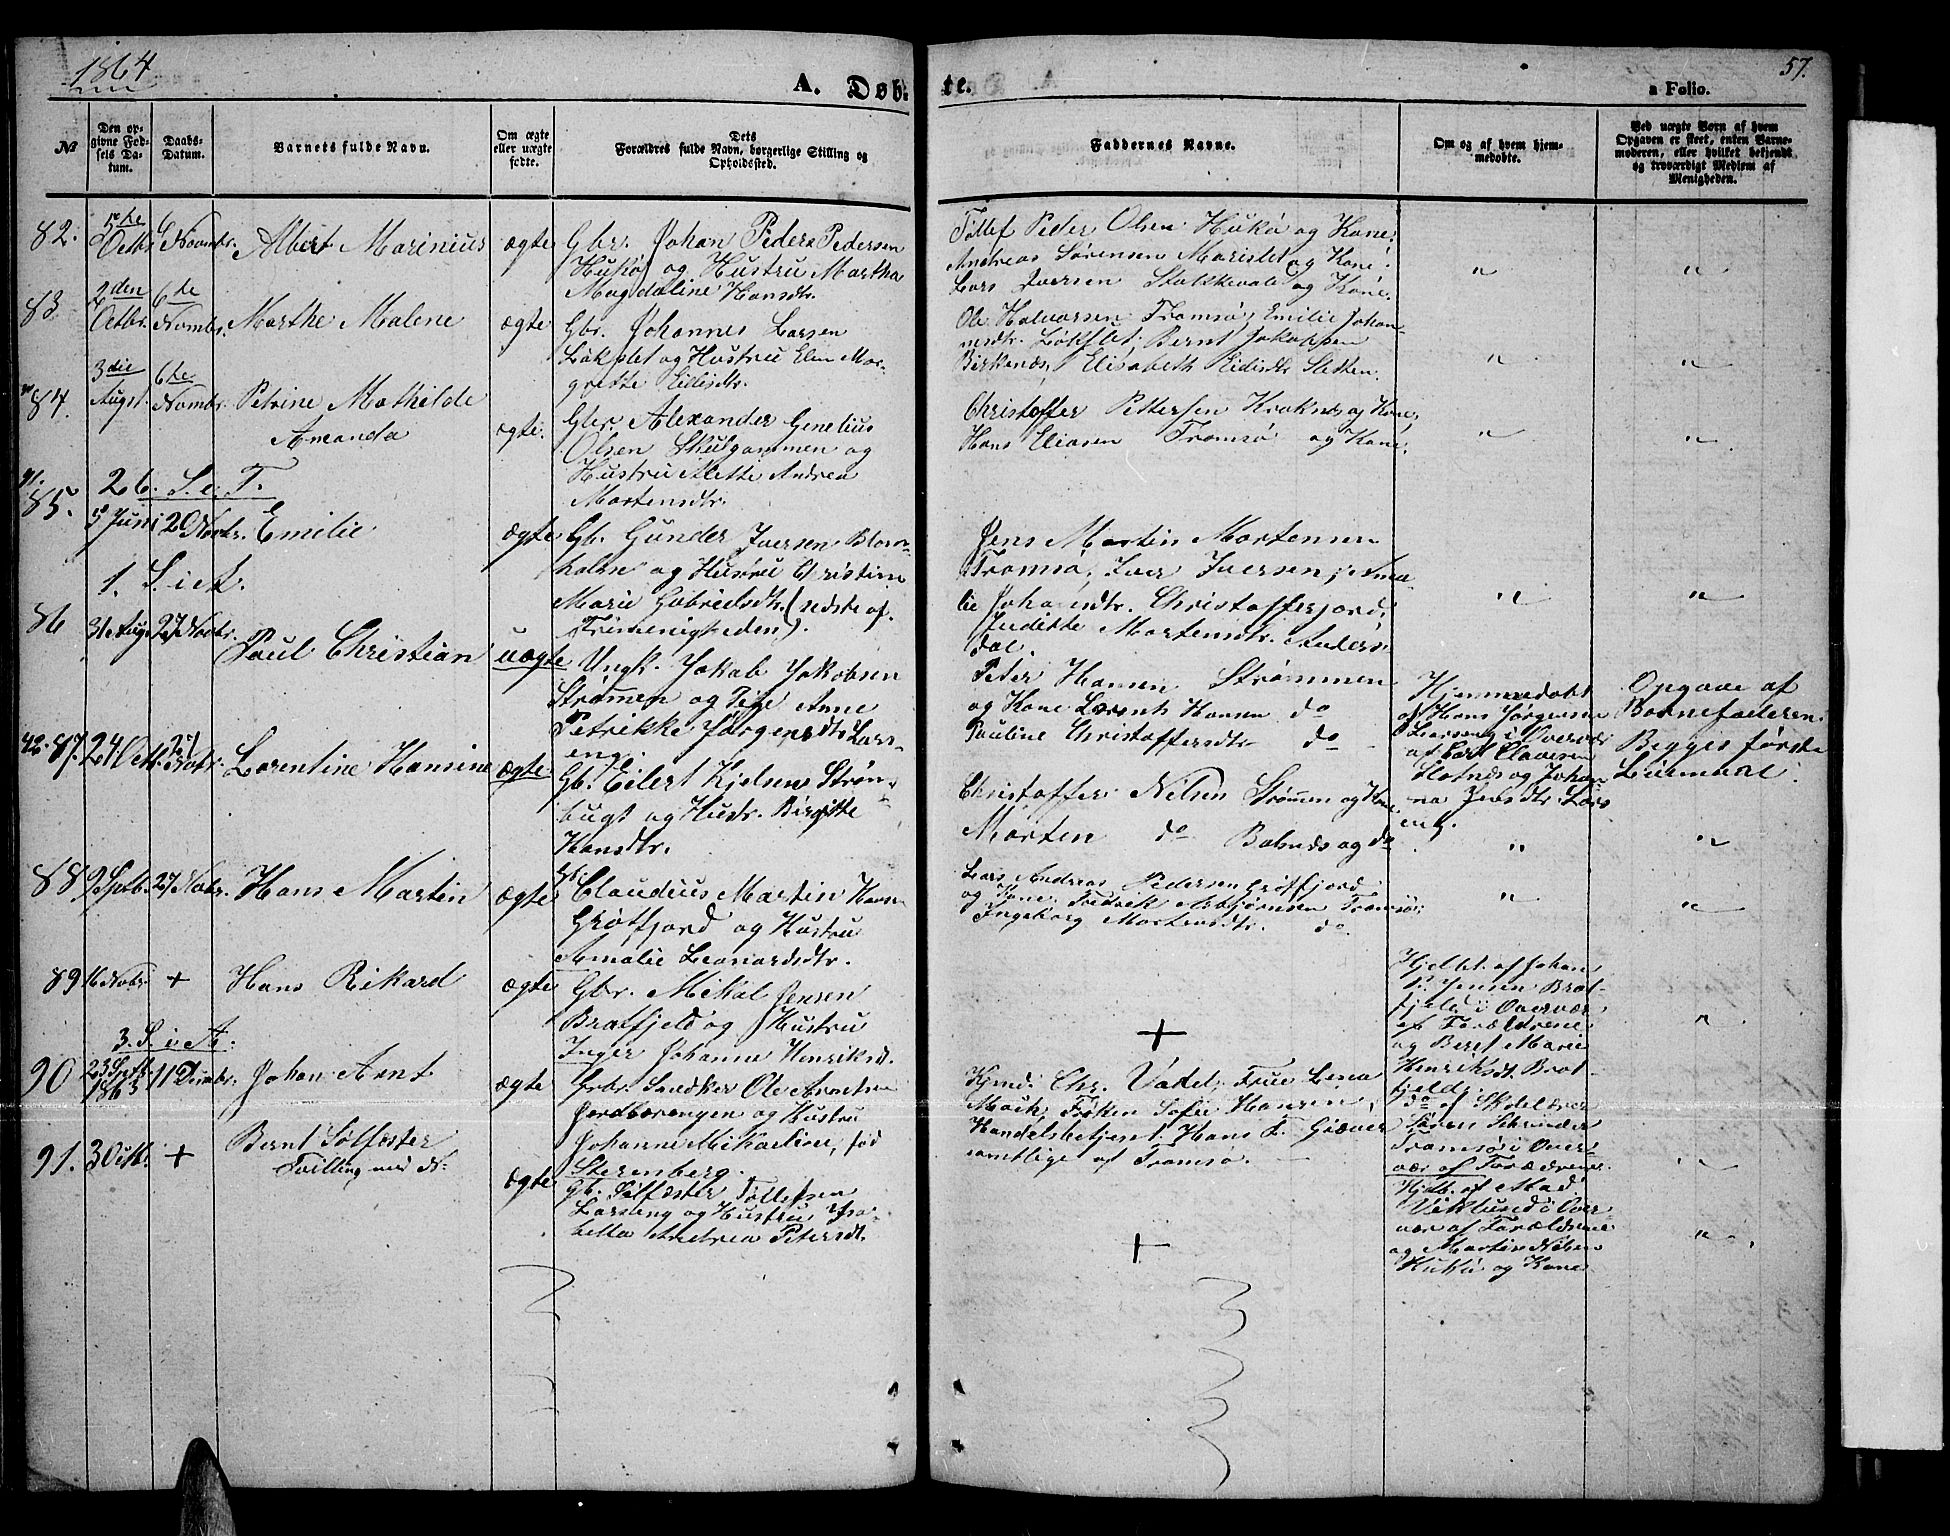 1864
57.
A. Døbte.
a Folio.
№
Den opgivne Fødsels Datum.
Daabs-Datum.
Barnets fulde Navn.
Om ægte eller uægte fødte.
Dets Forældres fulde Navn, borgerlige Stilling og Opholdssted.
Faddernes Navne.
Om og af hvem hjemmedøbte.
Ved uægte Børn af hvem Opgaven er skeet, enten Barnemoderen, eller hvilket bekjendt og troværdigt Medlem af Menigheden.
82.
5te
Octb.
6
Novmbr.
Albert Marinius
ægte
Gbr. Johan Peder Pedersen
Hukø og Hustru Martha
Magdaline Hansdtr.
Tollef Peder Olsen Hukø og Kone.
Andreas Sørensen og Kone.
Lars Iversen og Kone.
"
"
83
2den
Octbr.
6te
Novmbr.
Marthe Malene
ægte
Gbr. Johannes Larsen
Løkslet og Hustru Elen Mar-
grette Eidisdtr.
Ole Halvorsen Tromsø, Emilie Johan-
nesdtr. Løkslet. Bernt Jakobsen
Birkenæs, Elisabeth Eidisdtr Sletten.
"
"
84.
3die
Augst.
6te
Novmbr.
Petrine Mathilde
Amanda
ægte.
Gbr. Alexander Genelius
Olsen Skulgammen og
Hustru Alette Andrea
Mortensdtr.
Christoffer Pettersen Kraknæs og Kone,
Hans Eliasen Tromsø og Kone.
"
"
26. S. e. T.
85.
5 Juni
20 Novbr.
Emilie
ægte
Gb. Gunder Iversen
og Hustru Christine
Marie Gabrielsdtr. (udste af
Frimenigheden).
Jens Martin Mortensen
Tromsø, Iver Iversen,
Christoffersjord,
Juditte Mortensdtr. Anders-
dal.
"
"
1. S. i A.
86
31 Aug.
27 Novbr.
Paul Christian
uægte
Ungk. Jakob Jakobsen
Strømmen og Pige Anne
Petrikke Jørgensdtr Lars-
eng.
Peter Hansen Strømmen
og Kone Hansen do
Pauline Christoffersdtr do
Hjemmedøbt
af Hans Jørgensen
Larseng i Overvær
af
og Johan-
na Jensdtr. Lars-
eng.
Opgave af
Barnefaderen.
Begges første
Leiermaal.
87.
24 Octb
27 Novbr.
Lorentine Hansine
ægte
Gb. Eilert Kjelsen Strøm-
bugt og Hustr. Birgitte
Hansdtr.
Christoffer Nilsen Strømen og Kone
Morten do Balnæs og do
"
"
88
9 Septb.
27 Novbr.
Hans Martin
ægte
Gb. Claudius Martin Hansen
Grøtfjord og Hustru
Amalie Leonardsdtr.
Lars Andreas Pedersen Grøtfjord
og Kone. Fredrik Asbjørnsen Tromsø;
Ingeborg Mortensdtr. do.
"
"
89
16 Novbr.
+
Hans Rikard
ægte
Gbr. Mikal Jensen
Bratfjeld og Hustru
Inger Johanne Henriksd.
+
Hjdbt. af Johan
P. Jensen Brat-
fjeld i Overvær
af Forældrene
og Beret Marie
Henriksdt. Brat-
fjeld.
"
3. S. i A.
90
23 Septb.
1863
11 Decmbr.
Johan Arnt
ægte
Ole
og Hustru
Johanne Mikaeline, fød
Sterenberg.
Kjmd. Chr. Vadel, Frue Lena
Mack, Frøken Sofie Hansen,
Handelsbetjent Hans K. Giæver
samtlige af Tromsø.
do af
Søren Schrøder
Tromsø i Over-
vær af Forældrene.
"
91.
3 Octb.
+
Bernt Sølfæster
Tvilling med N.
ægte
Gb. Sølfæster Tollefsen
Larseng og Hustru Isa-
bella Andrea Petersdt.
+
Hjdb. af Mad.
Viklund i Over-
vær af Forældrene
og Martin Nilsen
Hukø og Kone
"